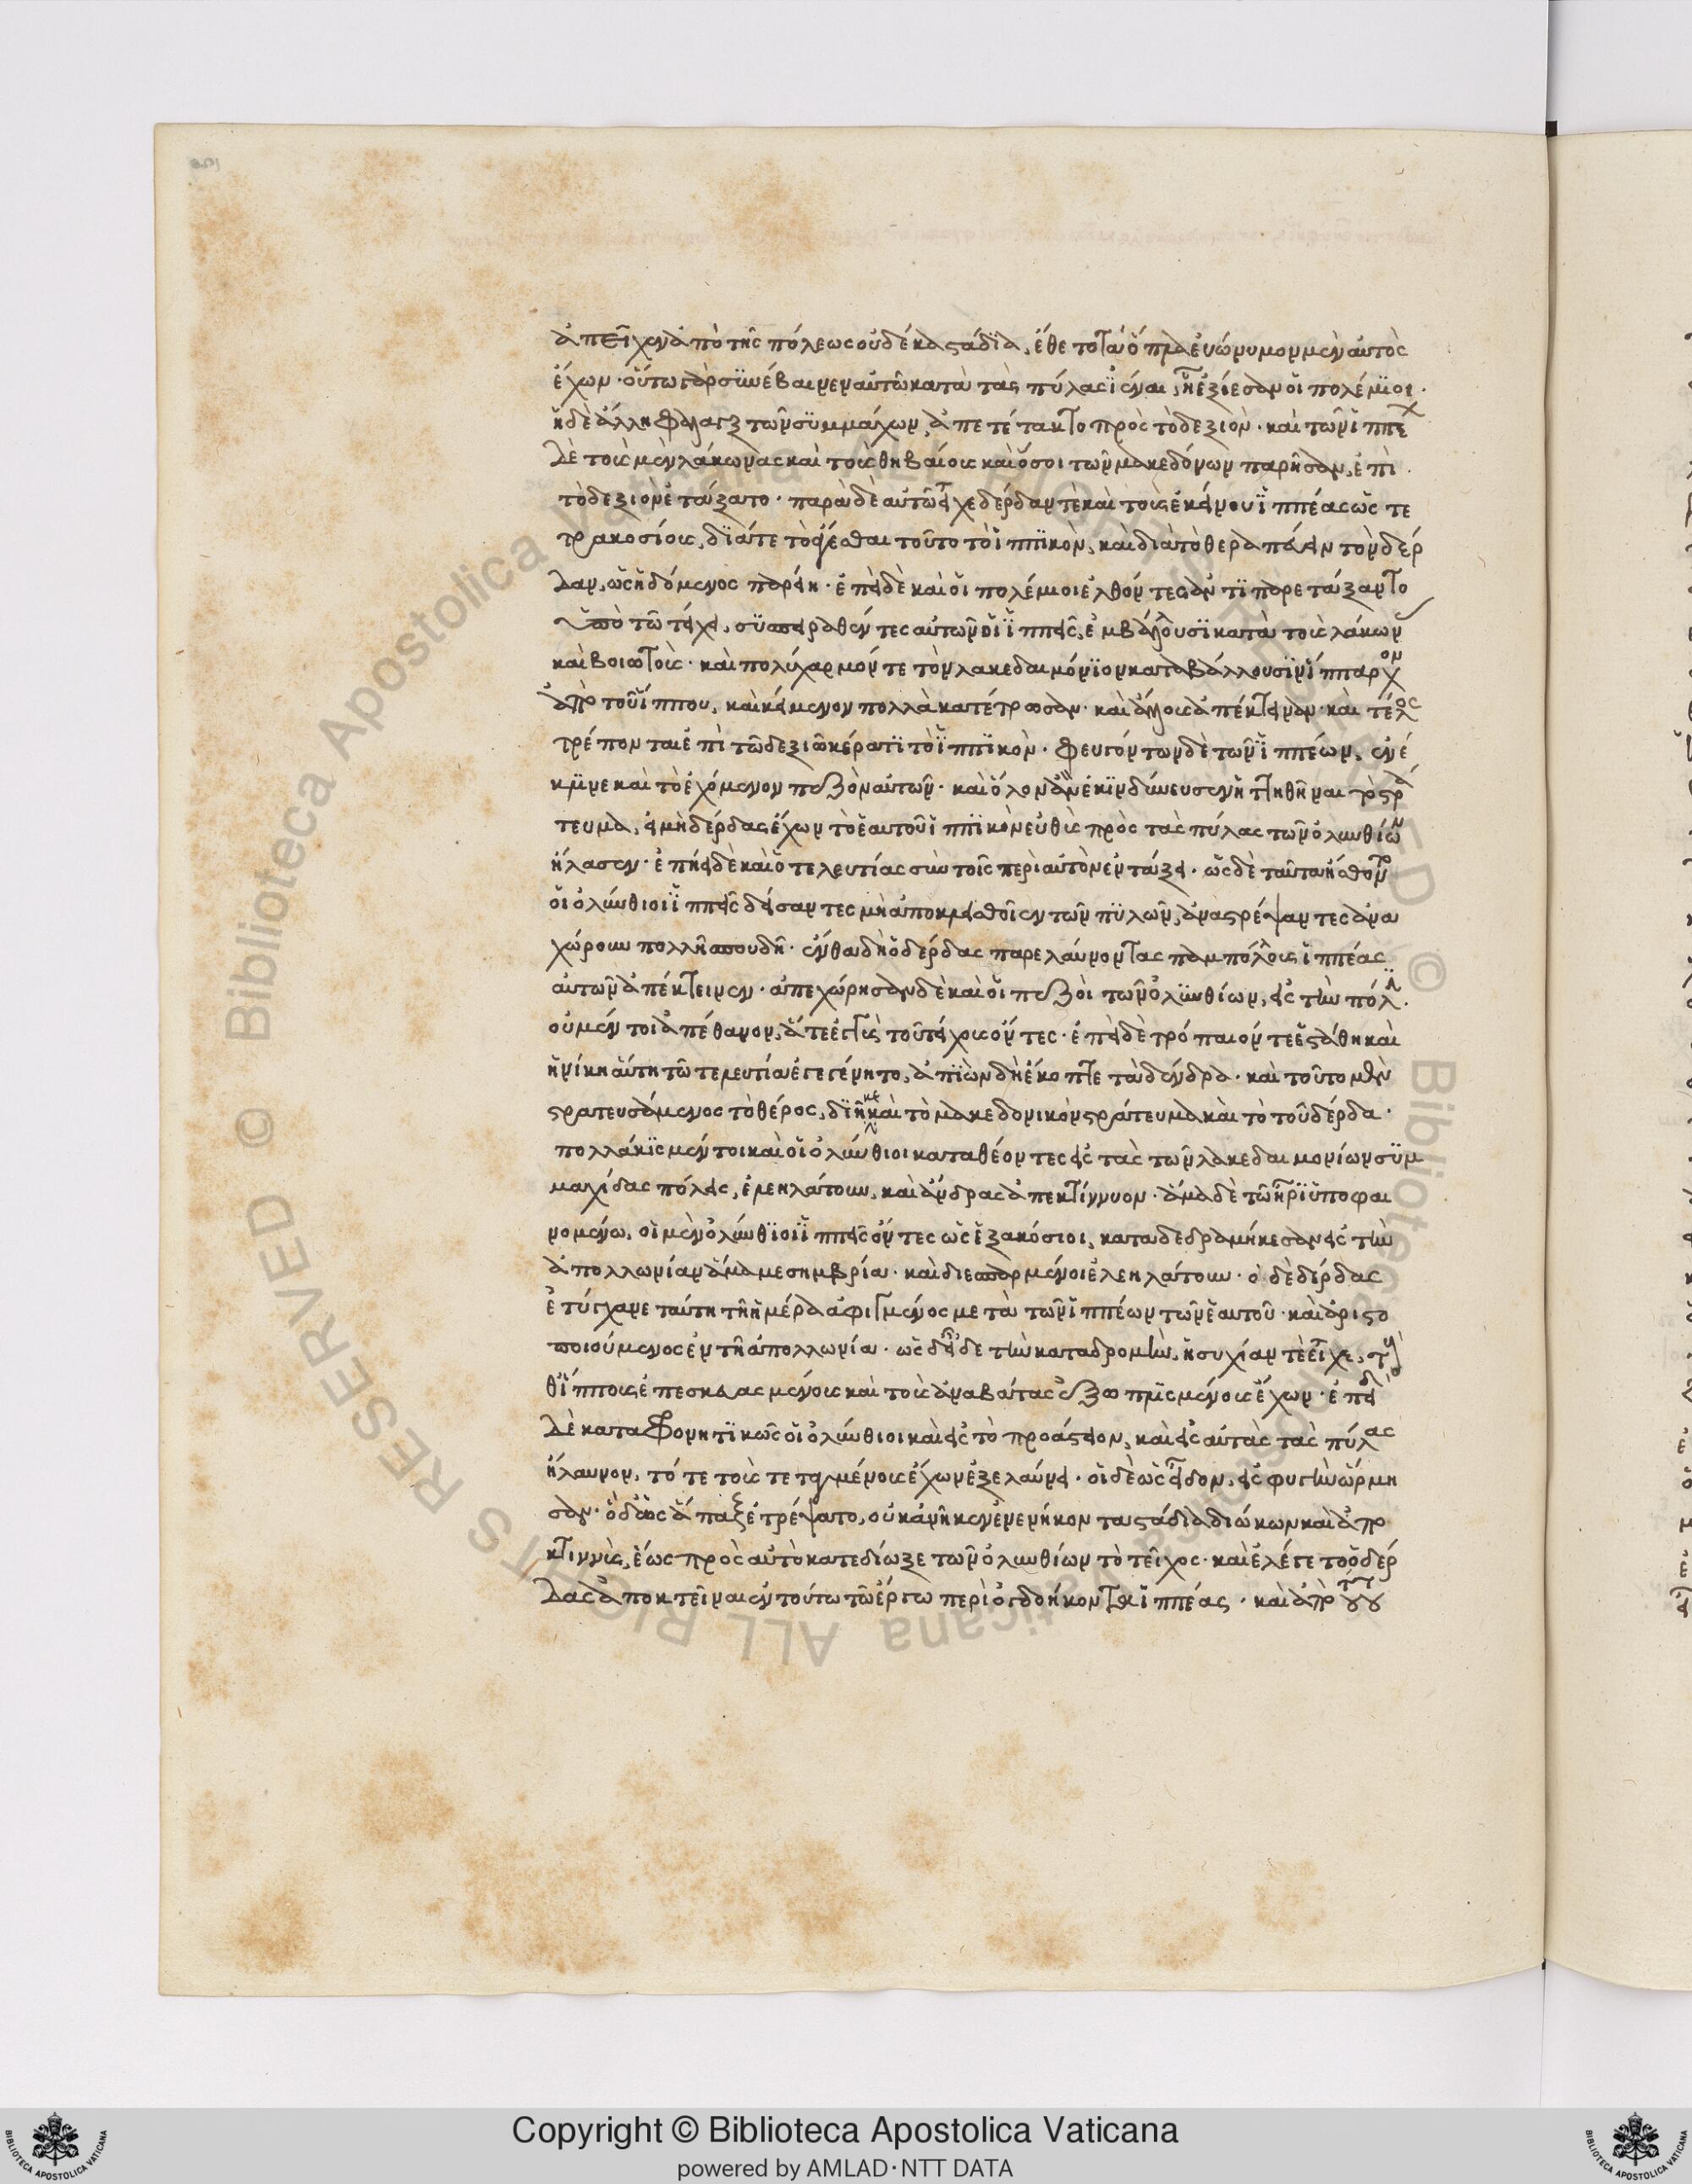 ἀπεῖχεν ἀπὸ τῆς πόλεως οὐδέκα στάδϊα, ἔθετο τὰ ὅπλα εὐώνυμον μὲν αὐτὸς
ἔχων· οὕτω γὰρ συνέβαινεν αὐτῶ κατὰ τὰς πύλας ἰέναι, ἧ ἐξίεσαν οἱ πολέμιοι·
ἡ δὲ ἄλλη φάλαγξ τῶν συμμάχων, ἀπετέτακτο πρὸς τὸ δεξιὸν· καὶ τῶν ἱππε
δὲ τοὺς μὲν λάκωνας καὶ τοὺς θηβαίους καὶ ὅσοι τῶν μακεδόνων παρῆσαν, ἐπὶ
τὸ δεξιὸν ἐτάξατο· παρὰ δὲ αὐτῶ εἶχε δέρδαν τὲ καὶ τοὺς ἐκείνου ἱππέας ὡς τε
τρακοσίους, διά τε τὸ ἄγασθαι τοῦτο τὸ ἱππικὸν, καὶ διὰ τὸ θεραπεύειν τὸν δέρ
δαν, ὡς ἡδόμενος παρείη· ἐπεὶ δὲ καὶ οἱ πολέμιοι ἐλθόντες ἀντιπαρετάξαντο
ὑπὸ τῶ τείχει, συσπειραθέντες αὐτῶν οἱ ἱππεῖς, ἐμβάλλουσι κατὰ τοὺς λάκων
καὶ βοιωτοὺς· καὶ πολύχαρμόν τε τὸν λακεδαιμόνιον καταβάλλουσιν ἵππαρχον
ἀπὸ τοῦ ἵππου, καὶ κείμενον πολλὰ κατέτρωσαν· καὶ ἄλλους ἀπέκτειναν· καὶ τέλος
τρέπονται ἐπὶ τῶ δεξιῶ κέρατι τὸ ἱππικὸν· φευγόντων δὲ τῶν ἱππέων, ἐνέ
κλινε καὶ τὸ ἐχόμενον πεζὸν αὐτῶν· καὶ ὅλον ἂν ἐκινδύνευσεν ἡττηθῆναι τὸ στρά
τευμα, εἰ μὴ δέρδας ἔχων τὸ ἑαυτοῦ ἱππικὸν εὐθὺς πρὸς τὰς πύλας τῶν ὀλυνθίων
ἤλασεν· ἐπήει δὲ καὶ ὁ τελευτίας σὺν τοῖς περὶ αὐτὸν ἐν τάξει· ὡς δὲ ταῦτα ἤσθοντο
οἱ ὀλύνθιοι ἱππεῖς δείσαντες μὴ ἀποκλεισθοῖεν τῶν πυλῶν, ἀναστρέψαντες ἀνα
χώρουν πολλῆ σπουδῆ· ἔνθα δὴ ὁ δέρδας παρελαύνοντας παμπόλλους ἱππέας
αὐτῶν ἀπέκτεινεν· ἀπεχώρησαν δὲ καὶ οἱ πεζοὶ τῶν ὀλυνθίων, εἰς τὴν πόλιν·
οὐ μέντοι ἀπέθανον, ἅτε ἐγγὺς τοῦ τείχους ὄντες· ἐπεὶ δὲ τρόπαιόν τε ἐστάθη καὶ
ἡ νίκη αὕτη τῶ τελευτία ἐγεγένητο, ἀπιὼν δὴ ἔκοπτε τὰ δένδρα· καὶ τοῦτο μὲν
στρατευσάμενος τὸ θέρος, διῆκε καὶ τὸ μακεδονικὸν στράτευμα καὶ τὸ τοῦ δέρδα·
πολλάκις μέντοι καὶ οἱ ὀλύνθιοι καταθέοντες εἰς τὰς τῶν λακεδαιμονίων συμ
μαχίδας πόλεις, ἐλεηλάτουν, καὶ ἄνδρας ἀπεκτίννυον· ἅμα δὲ τῶ ἦρι ὑποφαι
νομένω, οἱ μὲν ὀλύνθιοι ἱππεῖς ὄντες ὡς ἑξακόσιοι, καταδεδραμήκεσαν εἰς τὴν
ἀπολλωνίαν ἅμα μεσημβρία· καὶ διεσπαρμένοι ἐλεηλάτουν· ὁ δὲ δέρδας
ἐτύγχανε ταύτη τῆ ἡμέρα ἀφιγμένος μετὰ τῶν ἱππέων τῶν ἑαυτοῦ· καὶ ἀριστο
ποιούμενος ἐν τῆ ἀπολλωνία· ὡς δ᾽ εἶδε τὴν καταδρομὴν, ἡσυχίαν τὲ εἶχε, τούς
θ᾽ ἵππους ἐπεσκευασμένους καὶ τοὺς ἀναβάτας ἐξωπλισμένους ἔχων· ἐπειδὴ
δὲ καταφρονητικῶς οἱ ὀλύνθιοι καὶ εἰς τὸ προάστειον, καὶ εἰς αὐτὰς τὰς πύλας
ἤλαυνον, τότε τοὺς τεταγμένους ἔχων ἐξελαύνει· οἱ δὲ ὡς εἶδον, εἰς φυγὴν ὥρμη
σαν· ὁ δ᾽ ὡς ἅπαξ ἐτρέψατο, οὐκ ἀνῆκεν ἐνενήκοντα στάδια διώκων καὶ ἀπο
κτιννὺς, ἕως πρὸς αὐτὸ κατεδίωξε τῶν ὀλυνθίων τὸ τεῖχος· καὶ ἐλέγετο ὁ δέρ
δας ἀποκτεῖναι ἐν τούτω τῶ ἔργω περὶ ὀγδοήκοντα ἱππέας· καὶ ἀπὸ τούτου
Copyright © Biblioteca Apostolica Vaticana
powered by AMLAD·NTT DATA